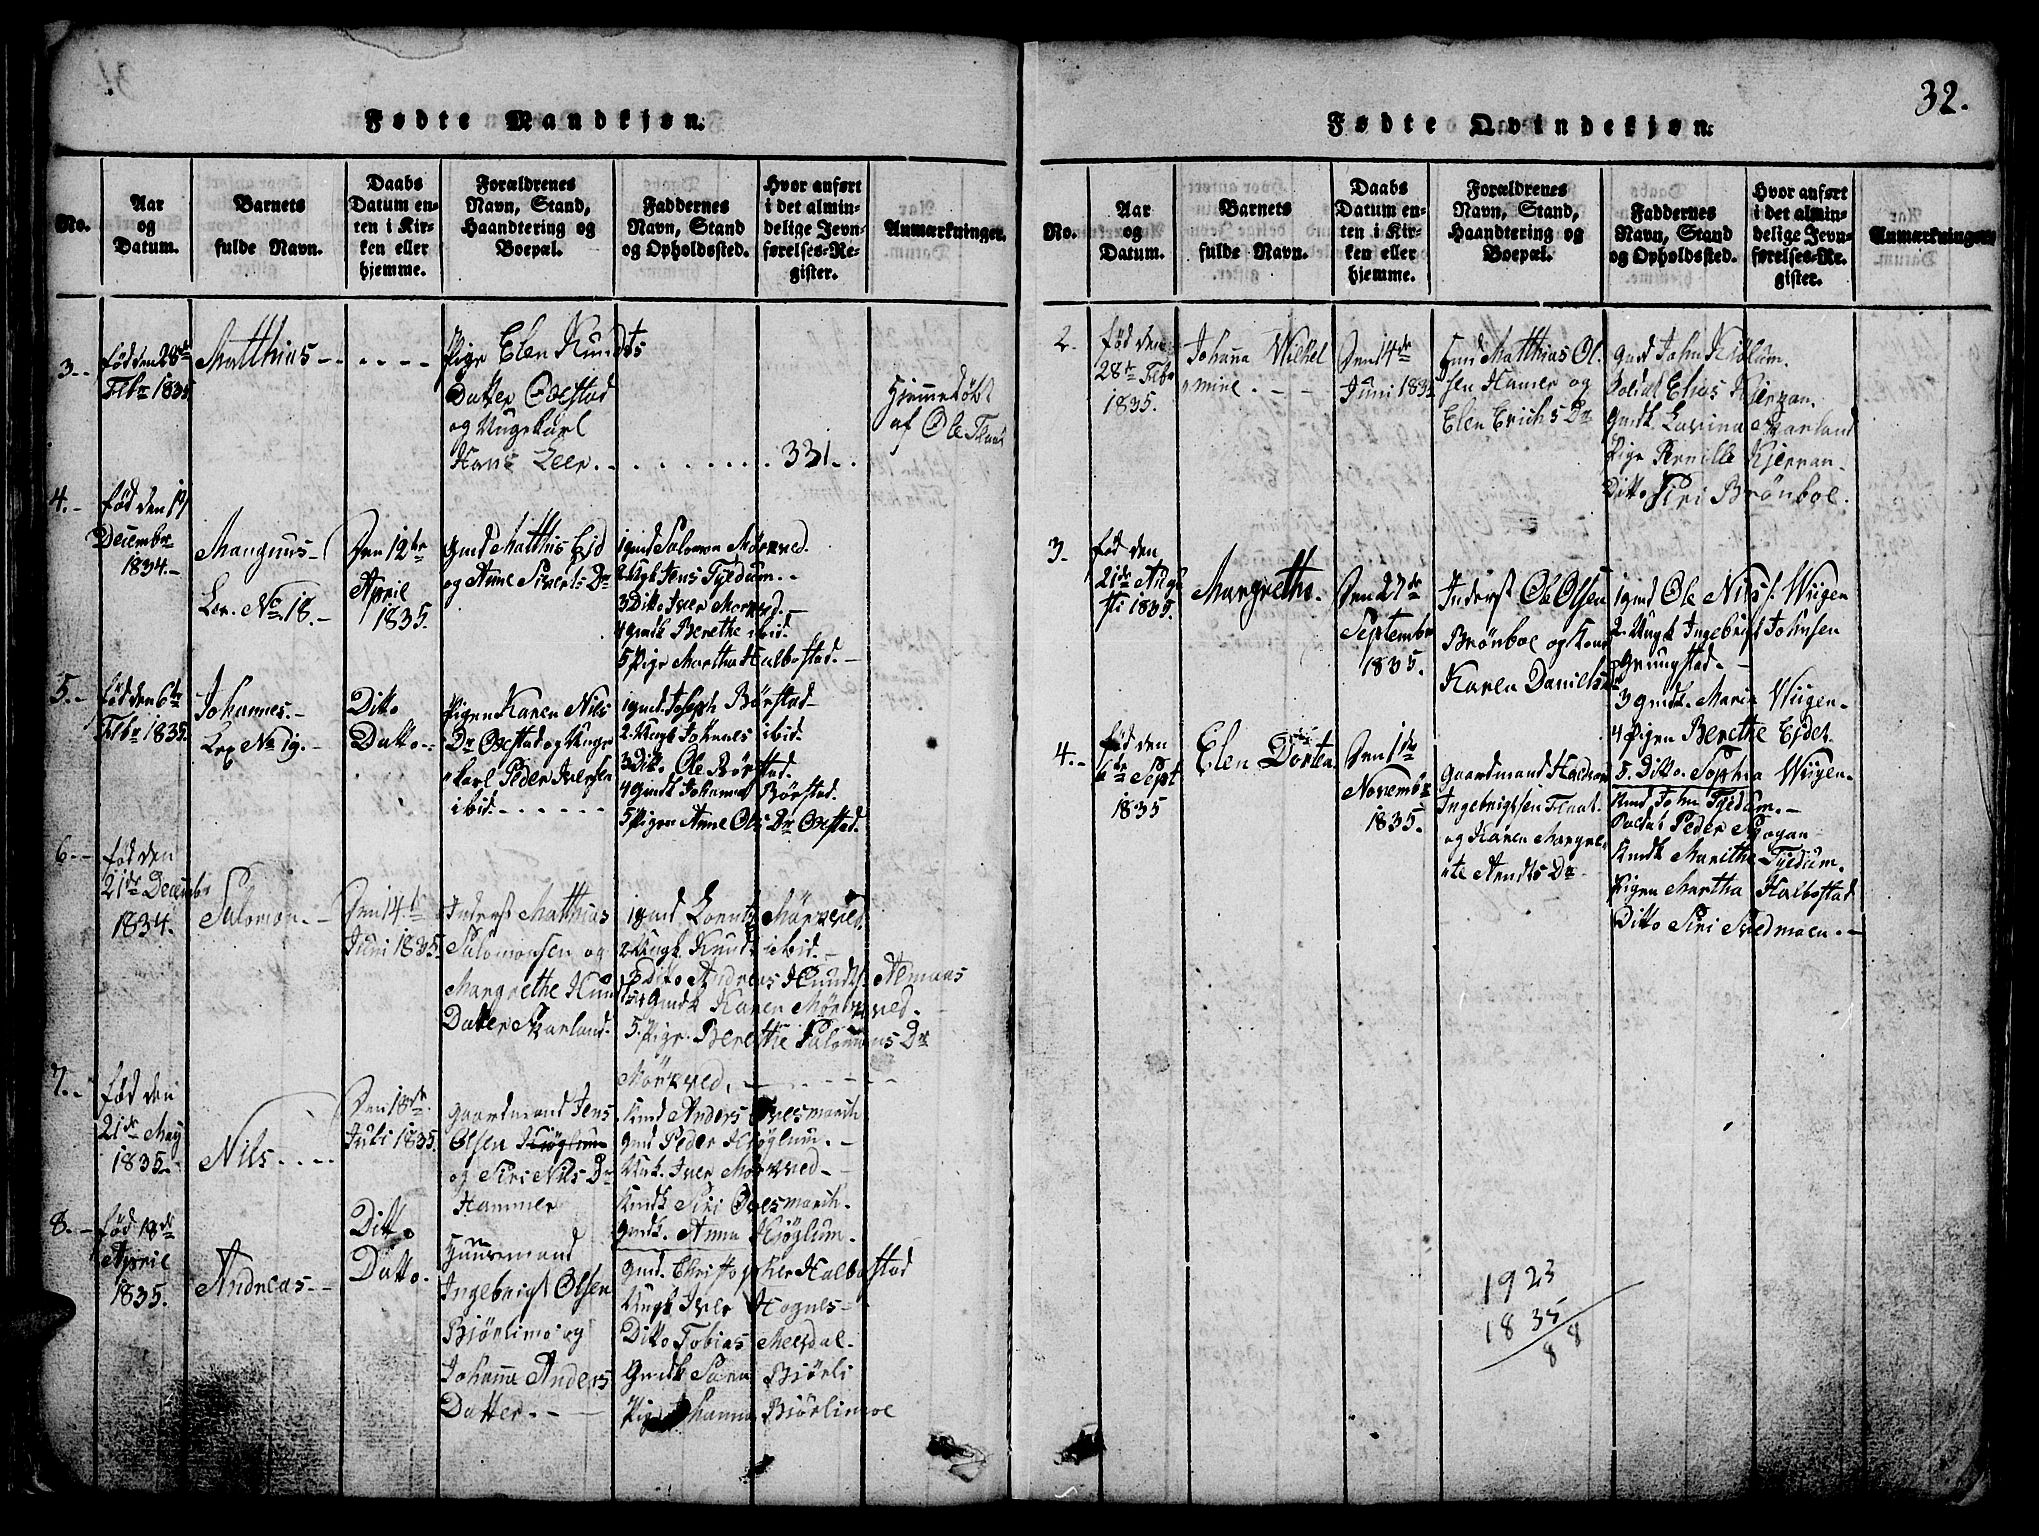 32.
Fødte Mandkjøn.
No.
Aar
og
Datum.
Barnets
fulde Navn.
Daabs
Datum en-
ten i Kir-
ken eller
hjemme.
Forældrenes
Navn, Stand,
Haandtering og
Boepæl.
Faddernes
Navn, Stand
og Opholdssted.
Hvor anført
i det almin-
delige Jevn-
førelses-Re-
gister.
Anmærkninger.
3.
fød den 28de
Febr 1835
Matthias
Pige Elen Knudts
Datter Oxestad
og Ungekarl
Hans Leer.
331.
Hjemmedøbt
af Ole Flaat
4.
fød den 19
Decembr
1834.
Mangnus
Lxr. No 18.
Den 12te
April
1835.
Gmd Matthis Eid
og Anne Siverts Dr
1 gmd Salomon Mörkved.
2 Ungk Jens Tyedum.
3 Ditto Iver Mörkved.
4 Gmdk Berethe ibid.
5 Pige Martha Halbostad.
5.
fød den 6te
Febr 1835.
Johannes.
Lxr No 19.
Ditto
Datto.
Pigen Karen Nils
Dr Oxestad og Unge
karl Peder Iversen
ibid.
1 gmd. Joseph Börstad
2. Ungk Johanes ibid.
3 Ditto Ole Börstad.
4 Gmdk Johanna Börstad.
5 Pigen Anne Ols Dr Oxestad.
6.
fød den
21de Decembr
1834.
Salomon.
Den 14de
Juni 1835.
Inderst Matthias
Salomonsen og
Margrethe Knudts
Datter Skarland.
1 gmd Lorentz Mörkved.
2 Ungk. Knud ibid.
3 Ditto Andreas Knudts. Aemnas
4 Gmdk Karen Mörkved.
5. Pige. Berethe Salomons Dr
Mörkved.
7.
fød den
21de May
1835.
Nils
Den 18de
Juli 1835.
Gaardmand Jens
Olsen Kiöglum
og Siri Nils Dr
Hammer
Kmd Anders Ovesmarch
Gmd Peder Kjøglum.
Unk. Iver Mörkved
Kmdk Siri Ovesmarch.
Gmdk. Anna Kjöglum.
8.
fød 18de
April
1835.
Andreas
Ditto
Datto.
Huusmand
Ingebrigt Olsen
Bjørlimo og
Johanne Anders
Datter.
Gmd. Christopher Halbostad
Ungk Iver Hognes
Ditto Tobias Melsdal.
Gmdk Sara Bjørli
Pige Johanna Bjørlimoe
Fødte Qvindekjøn.
No.
Aar
og
Datum.
Barnets
fulde Navn.
Daabs
Datum en-
ten i Kir-
ken eller
hjemme.
Forældrenes
Navn, Stand,
Haandtering og
Boepæl.
Faddernes
Navn, Stand
og Opholdssted.
Hvor anført
i det almin-
delige Jevn-
førelses-Re-
gister.
Anmærkninger
2.
fød den
28de Febr
1835.
Johanna Wilhel
mine.
Den 14de
Juni 1835
Gmd Matthias Ol-
sen Hamer og
Elen Erichs Dr
Gmd John Kiölum.
Soldat Elias Kjerran.
Gmdk Lavina Skarland
Pige Pernille Kjerran
Ditto Siri Brönboe.
3.
fød den
21de Augu
sti 1835.
Margrethe.
Den 27de
Septembr
1835.
Inderst Ole Olsen
Brönboe og Kone
Karen Daniels Dr
1 gmd Ole Nils S. Wiigen
2. Ungk Ingebrigt Johnsen
Grungstad.
3 gmdk. Maria Wiigen
4 Pigen Berethe Eidet
5. Ditto Sophia Wiigen
4.
fød den
6te Sept
1835
Elen Dortea
Den 1de
Novembr
1835.
Gaardmand Haldor
Ingebrigtsen Flaat.
og Karen Margre
te Arndts Dr
Kmd John Tyedum.
Soldat Peder Skogan
Kmdk Marithe Tyedum.
Pigen Martha Halbostad
Ditto Siri Svedmoen.
1923
1835
88